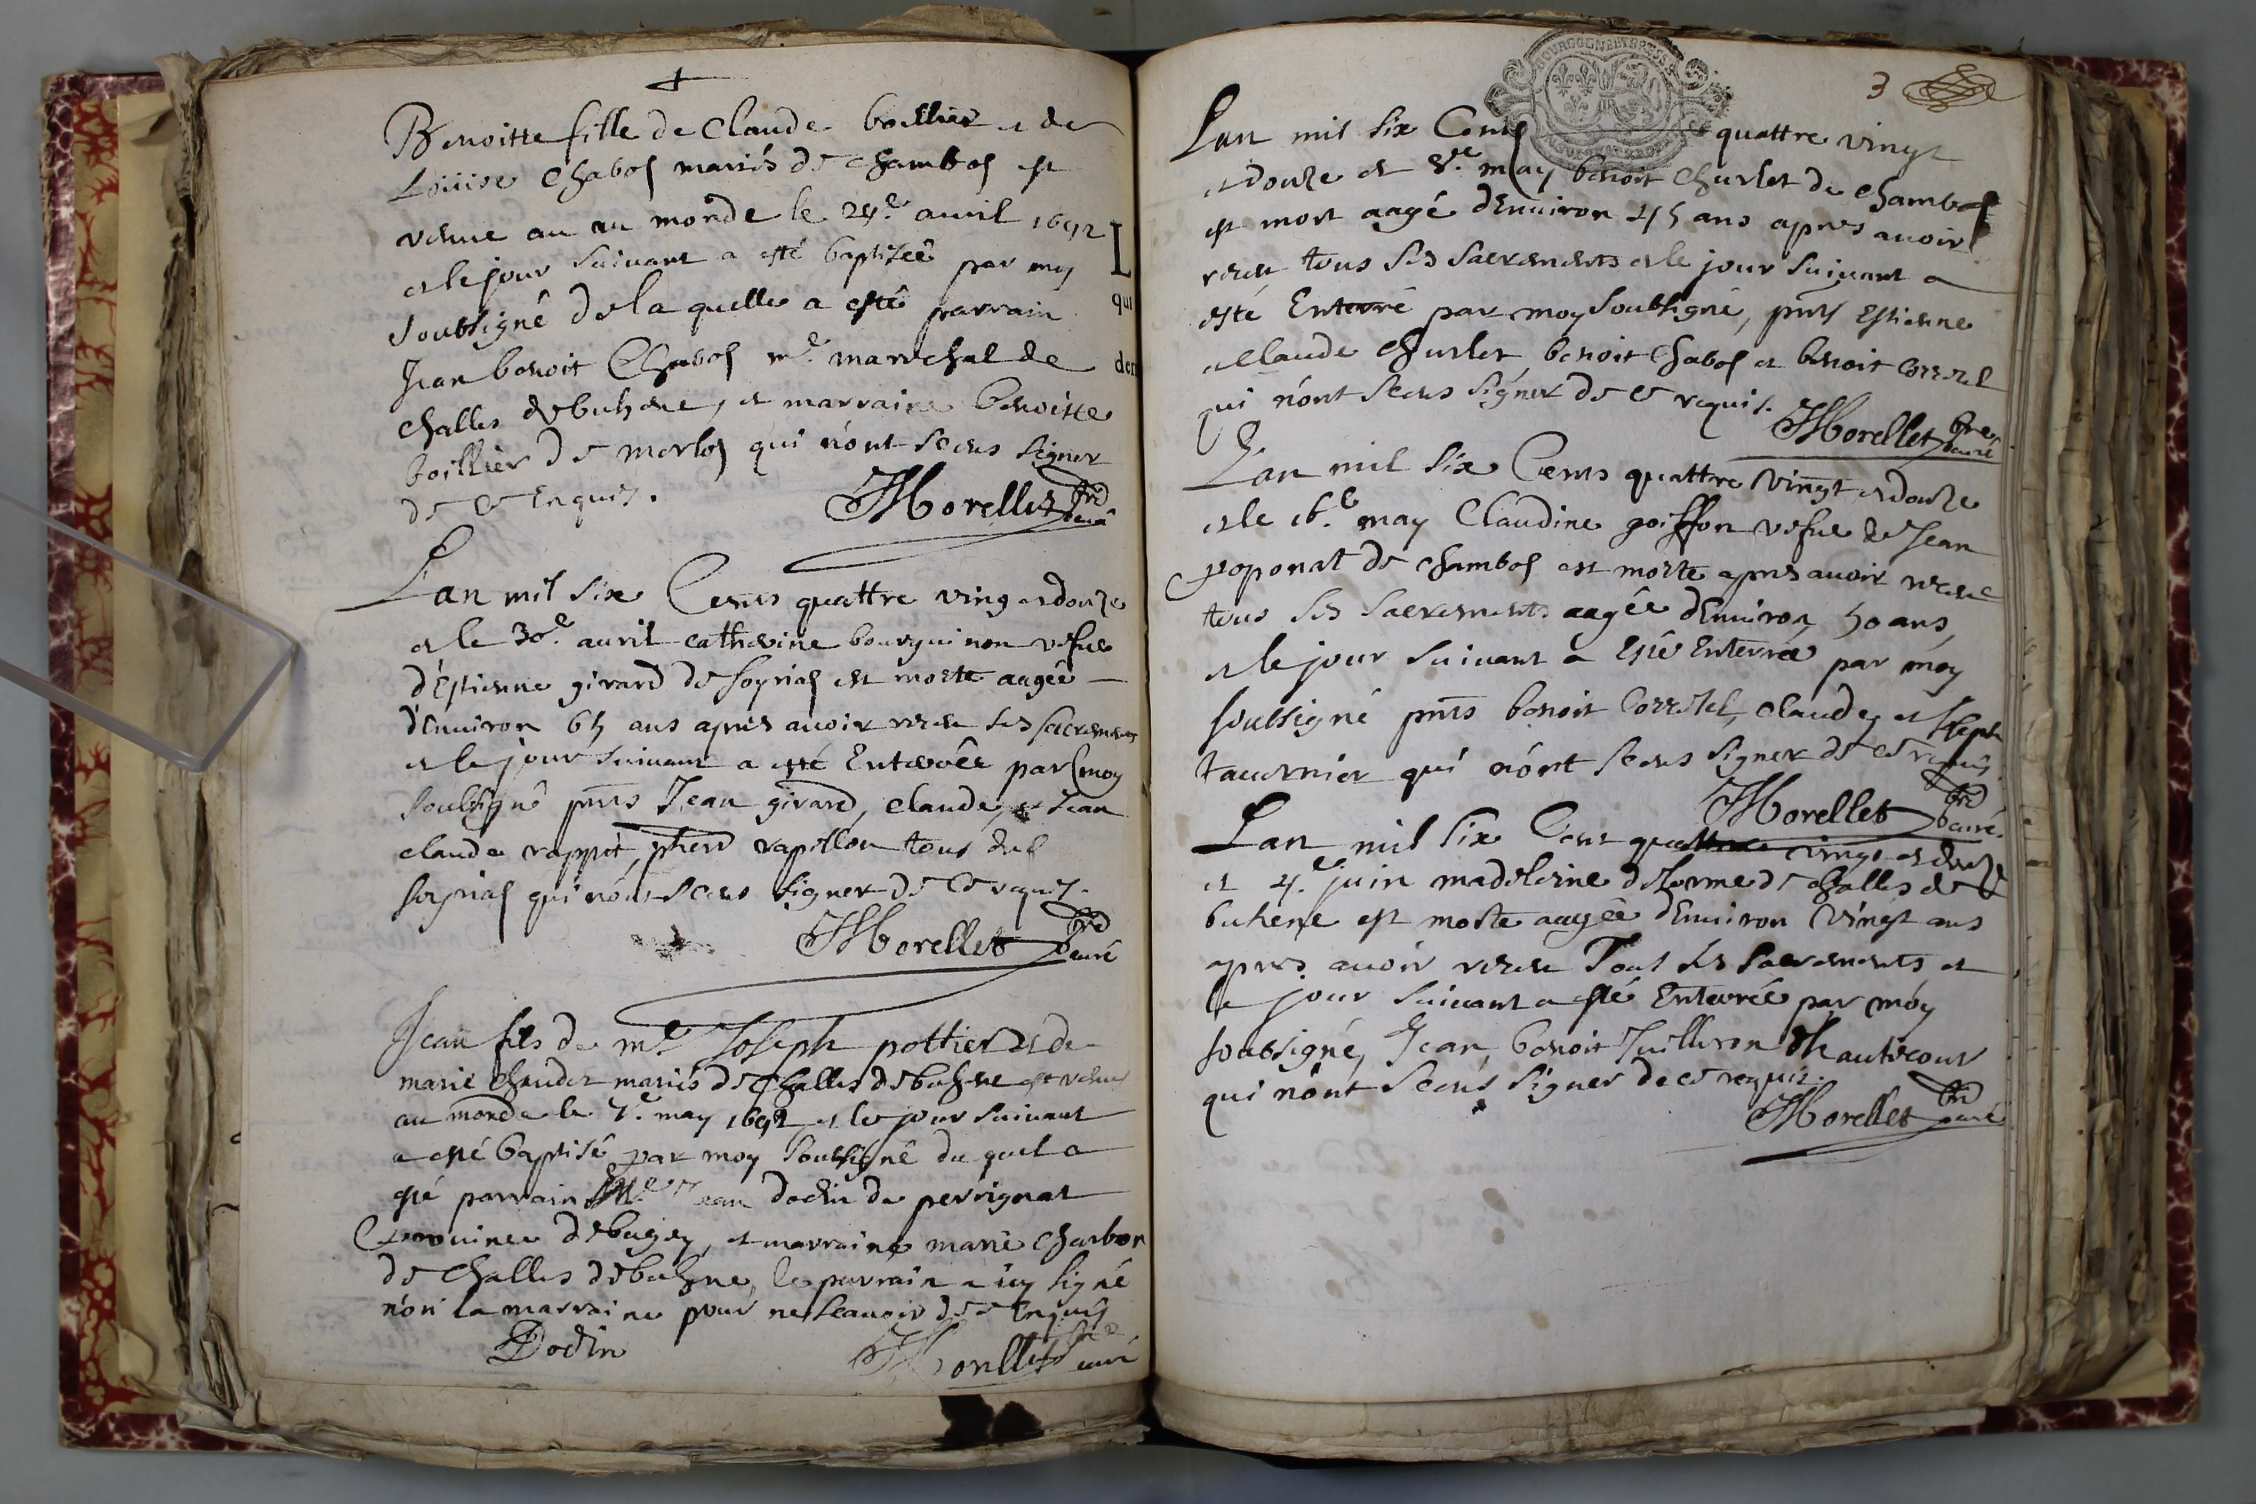 Benoitte fille de Claude boillier et de
Loüise Chabod mariés de Chambod est
venue au au monde le 24e. avril 1692
et le jour suivant a esté baptizeê par moy
soubsigné de la quelle a estê parrain
Jean benoit Chabod me. marechal de
Challes de buhene, et marraine benoitte
boillier de merloz qui n'ont sceus signer
de ce Enquis.
JMorellet pbre
curé
Lan mil six Cents quattre ving et douze
et le 30e. avril catherine bourguinon vefue
d'Estienne girard de soyriad est morte aagêe
d'Environ 65 ans apres avoir receu ses sacremens
et le jour suivant a esté Enterrêe par moy
soubsignê pnts Jean girard, claude, et Jean
claude rappit, vapillon tous de
soyriad qui n'ont sceus signer de ce requis.
JMorellet pbre
curé
Jean fils de me. Joseph pottier et de
marie Chaudet mariés de Challes de buhene est venu
au monde le 7e. may 1692 et le jour suivant
a esté baptisé par moy soubsigné du quel a
esté parrain Me. Jean dodin de perrignat
province de bugey, et marraine marie Charbon
de Challes de buhene, le parrain a icy signé
non la marraine pour ne sçauoir de ce Enquis
Dodin
JMorellet pbre
curé
L
qui
den
3
Lan mil six Cents quattre vingt
et douze et 8e. may benoit Churlet de Chambod
est mort aagé d'Environ 45 ans apres avoir
receu tous ses sacrements et le jour suivant a
esté Enterré par moy soubsigné, pnts Estienne
Claude Churlet, benoit Chabod et benoit Corretel
qui n'ont sceus signer de ce requis.
JMorellet pbre
curé
Lan mil six Cents quattre vingt et douze
et le 16.e may Claudine goiffon vefue de Jean
poponat de Chambod est morte apres avoir receu
tous ses sacrements aagée d'Environ 50 ans,
et le jour suivant a Esté Enterrée par moy
soubsigné pnts benoit Corretel, claude, et Joseph
tavernier qui n'ont sceus signer de ce requis
JMorellet pbre
curé.
Lan mil six Cent quattre vingt et douze
et 4.e juin madeleine delorme de challes de
buhene est morte aagée d'Environ vingt ans
apres avoir receu Tous ses sacrements et
le jour suivant a esté Enterrée par moy
soubsigné, Jean, benoit Juilleron d'hautecour
qui n'ont sceus signer de ce requis.
JMorellet pbre
curé